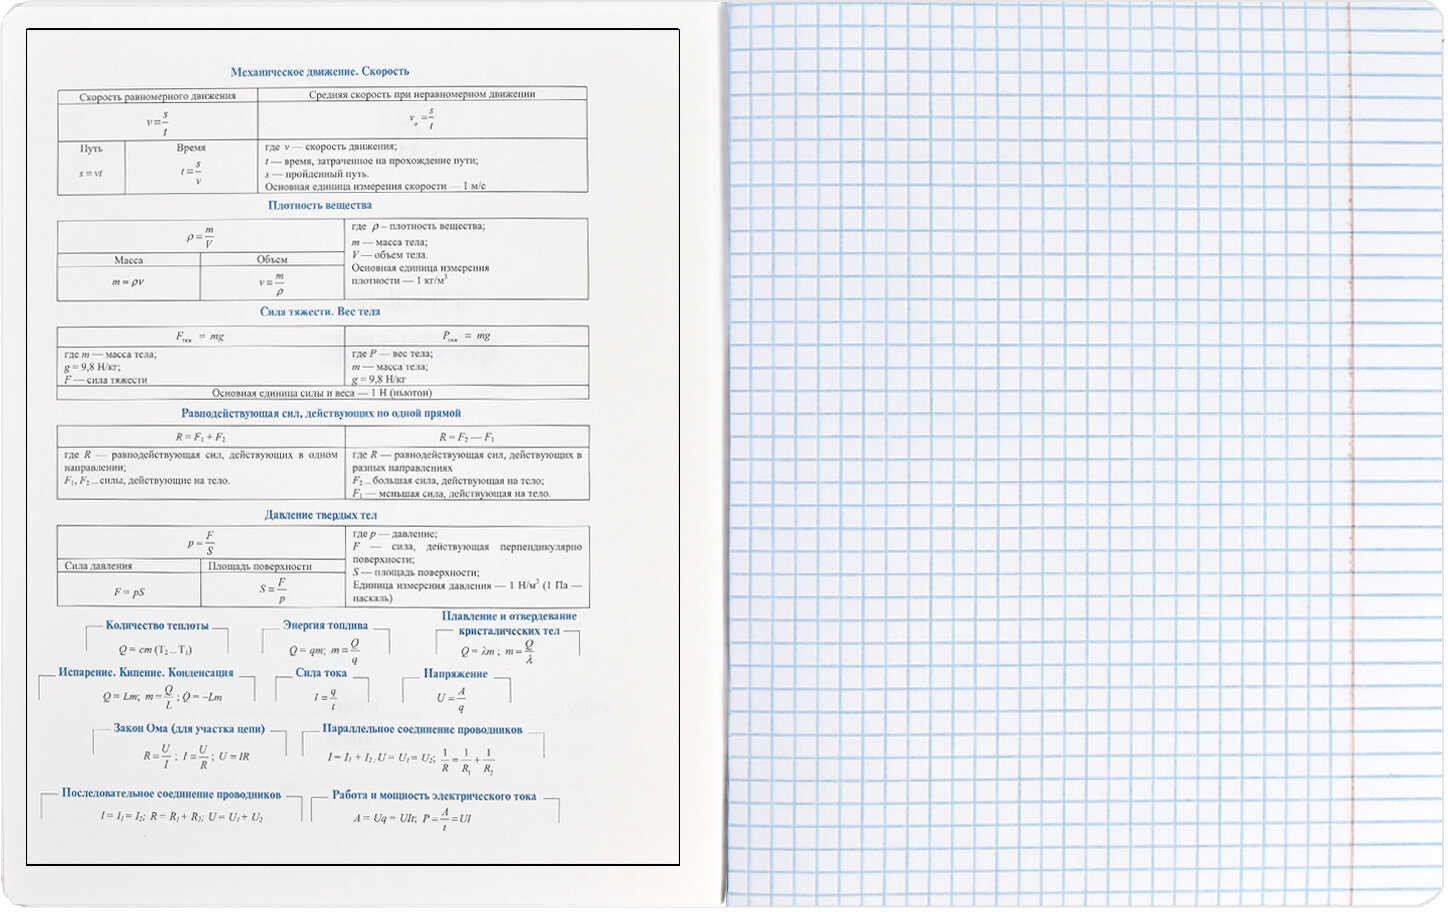 Механическое движение. Скорость
Скорость равномерного движения
Средняя скорость при неравномерном движении
v = s/t
v = s/t
Путь
Время
где v — скорость движения;
s = vt
t = s/v
t — время, затраченное на прохождение пути;
s — пройденный путь.
Основная единица измерения скорости — 1 м/с
Плотность вещества
ρ = m/V
где ρ – плотность вещества;
m — масса тела;
V — объем тела.
Основная единица измерения
плотности — 1 кг/м³
Масса
Объем
m = ρv
v = m/ρ
Сила тяжести. Вес тела
Fтяж = mg
Pтяж = mg
где m — масса тела;
g = 9,8 Н/кг;
F — сила тяжести
где P — вес тела;
m — масса тела;
g = 9,8 Н/кг
Основная единица силы и веса — 1 Н (ньютон)
Равнодействующая сил, действующих по одной прямой
R = F₁ + F₂
R = F₂ — F₁
где R — равнодействующая сил, действующих в одном
направлении;
F₁, F₂ – силы, действующие на тело.
где R — равнодействующая сил, действующих в
разных направлениях
F₂ – большая сила, действующая на тело;
F₁ — меньшая сила, действующая на тело.
Давление твердых тел
p = F/S
где p — давление;
F — сила, действующая перпендикулярно
поверхности;
S — площадь поверхности;
Единица измерения давления — 1 Н/м² (1 Па —
паскаль)
Сила давления
Площадь поверхности
F = pS
S = F/p
Количество теплоты
Q = cm (T₂ – T₁)
Энергия топлива
Q = qm; m = Q/q
Плавление и отвердевание
кристалических тел
Q = λm ; m = Q/λ
Испарение. Кипение. Конденсация
Q = Lm; m = Q/L ; Q = –Lm
Сила тока
I = q/t
Напряжение
U = A/q
Закон Ома (для участка цепи)
R = U/I ; I = U/R ; U = IR
Параллельное соединение проводников
I = I₁ + I₂ . U = U₁ = U₂; 1/R = 1/R₁ + 1/R₂
Последовательное соединение проводников
I = I₁ = I₂; R = R₁ + R₂; U = U₁ + U₂
Работа и мощность электрического тока
A = Uq = UIt; P = A/t = UI